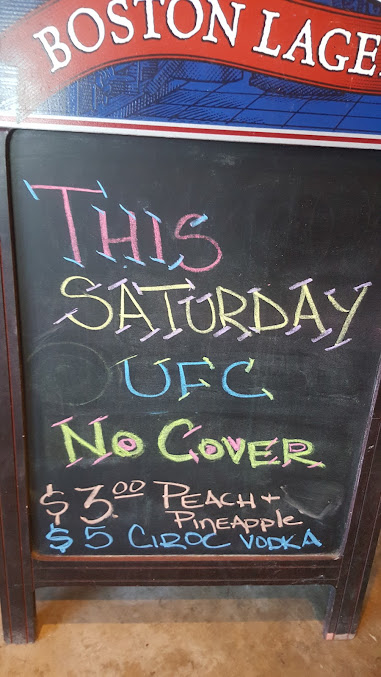 BOSTON LAGE
THIS
SATURDAY
UFC
NO COVER
$3.00 PEACH +
PINEAPPLE
$5 CIROC VODKA